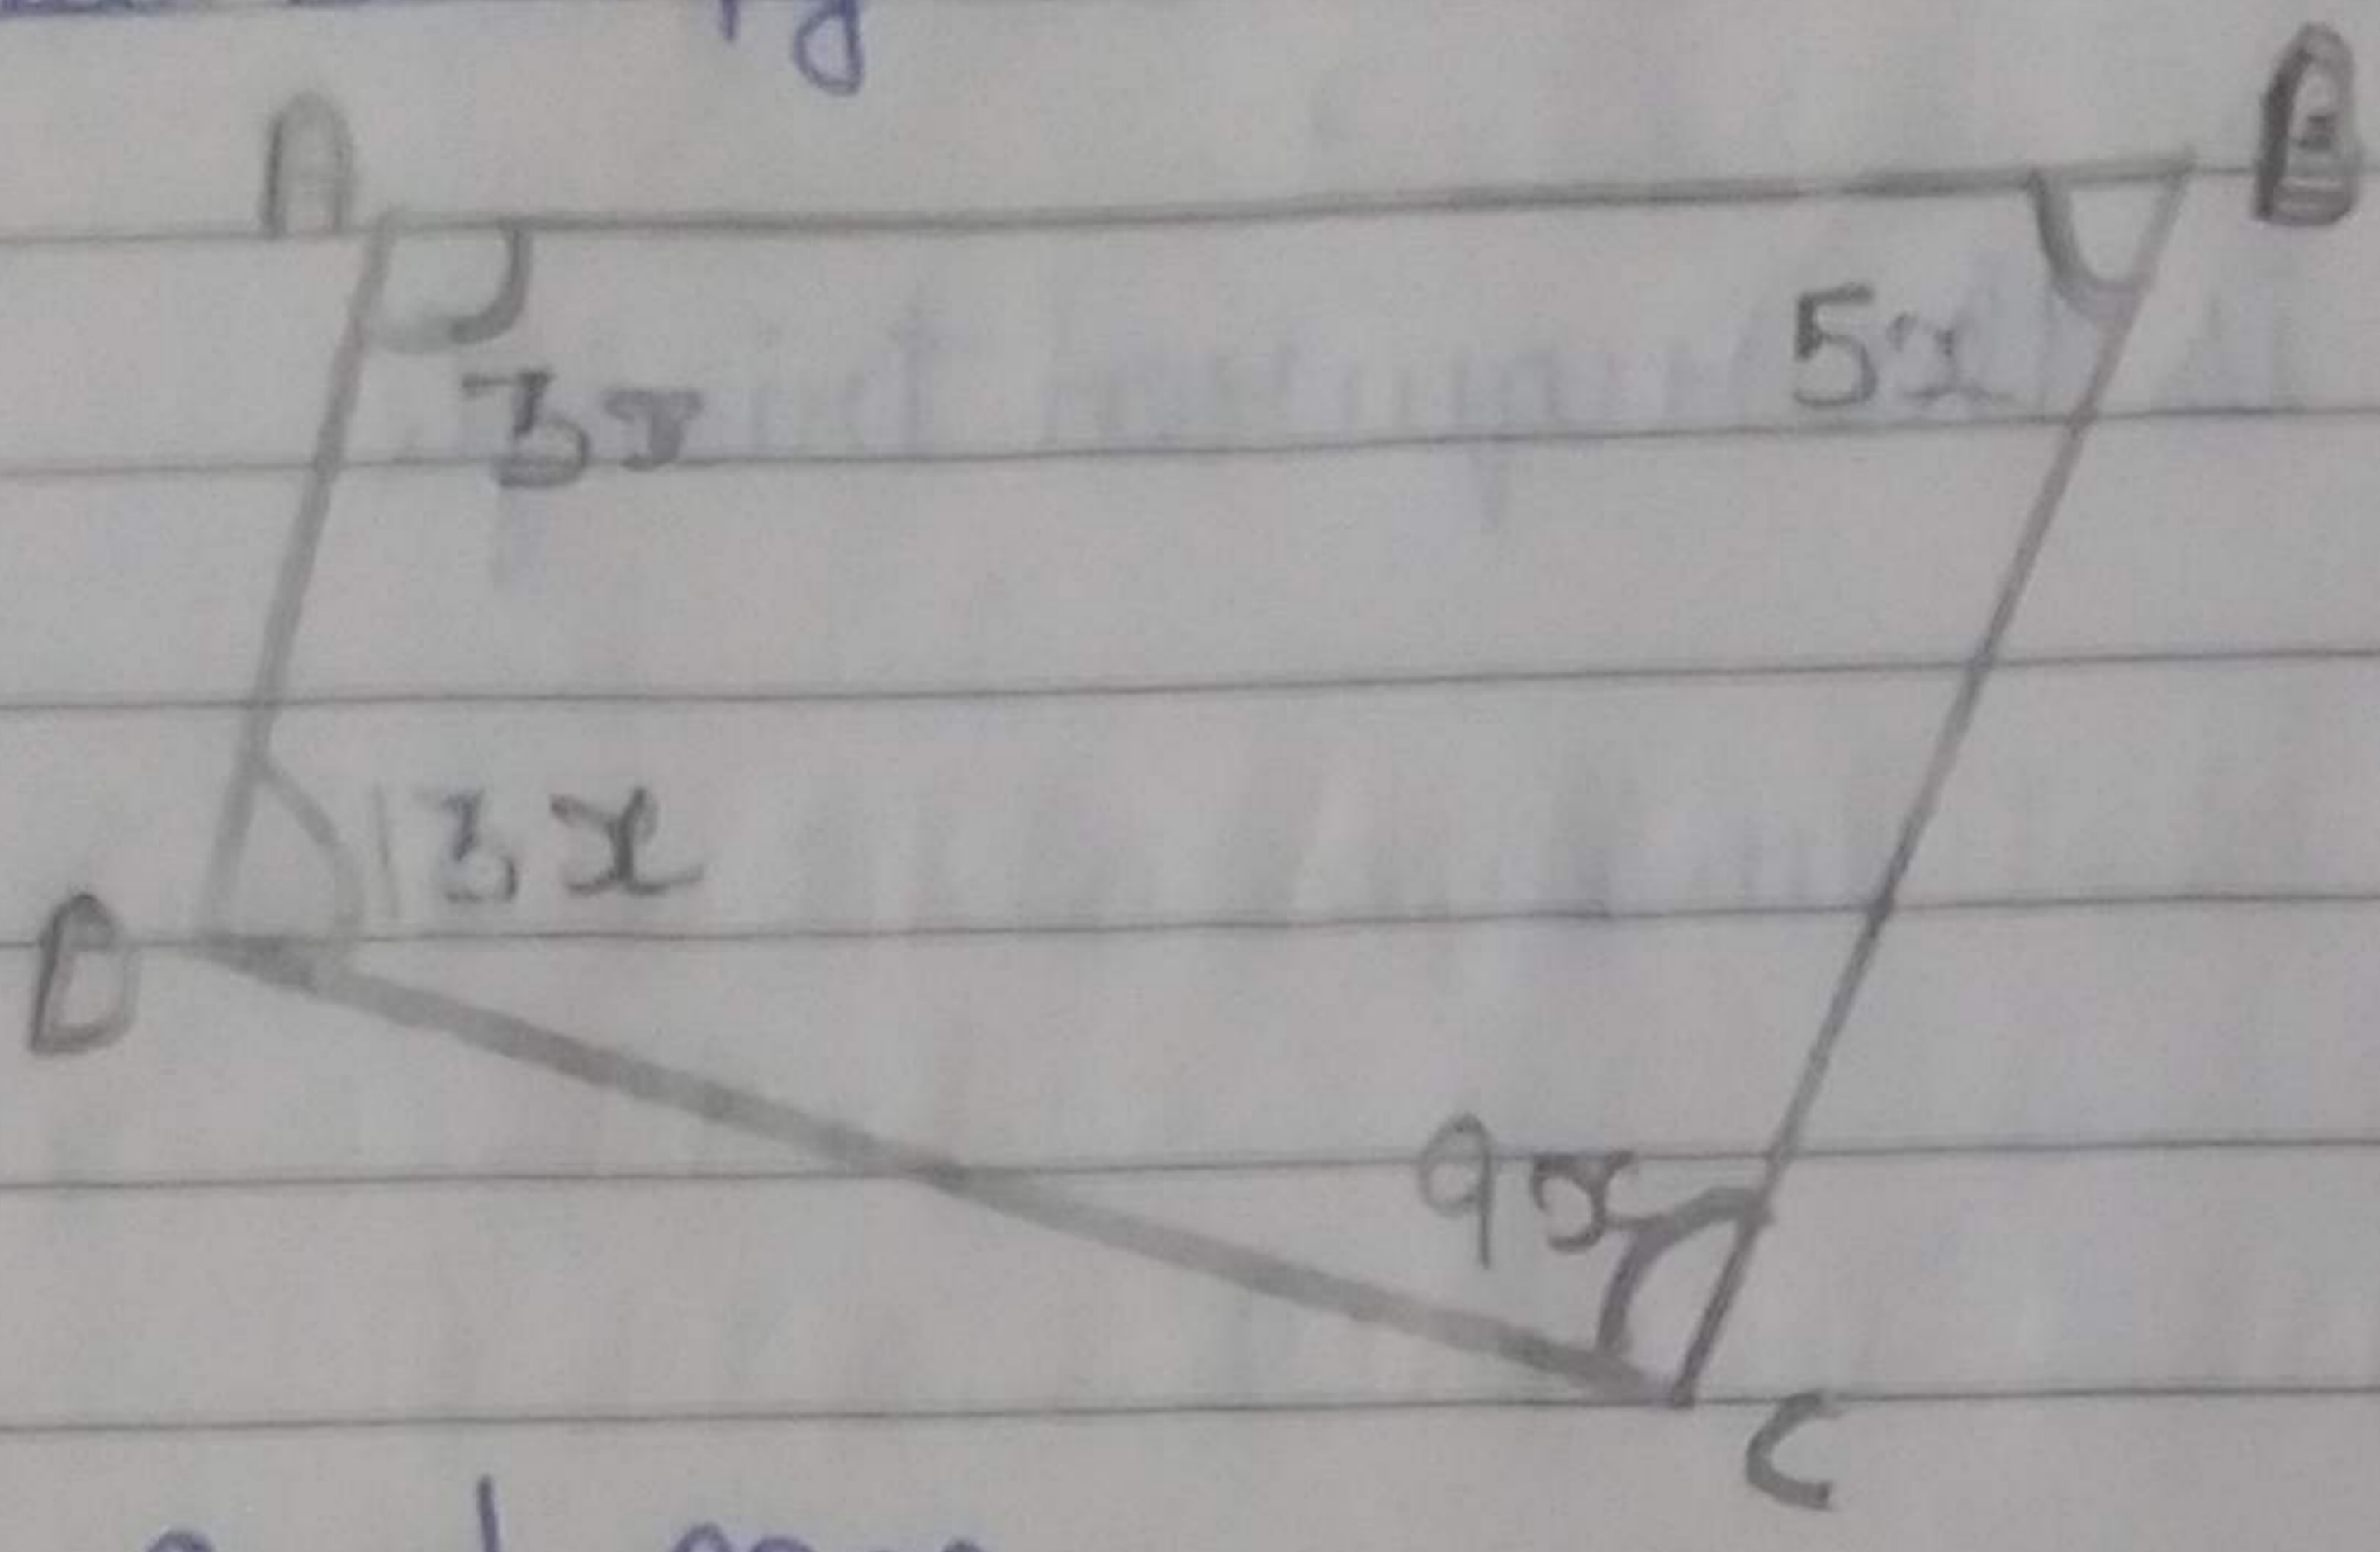 A
B
3x
5x
13x
D
9x
C